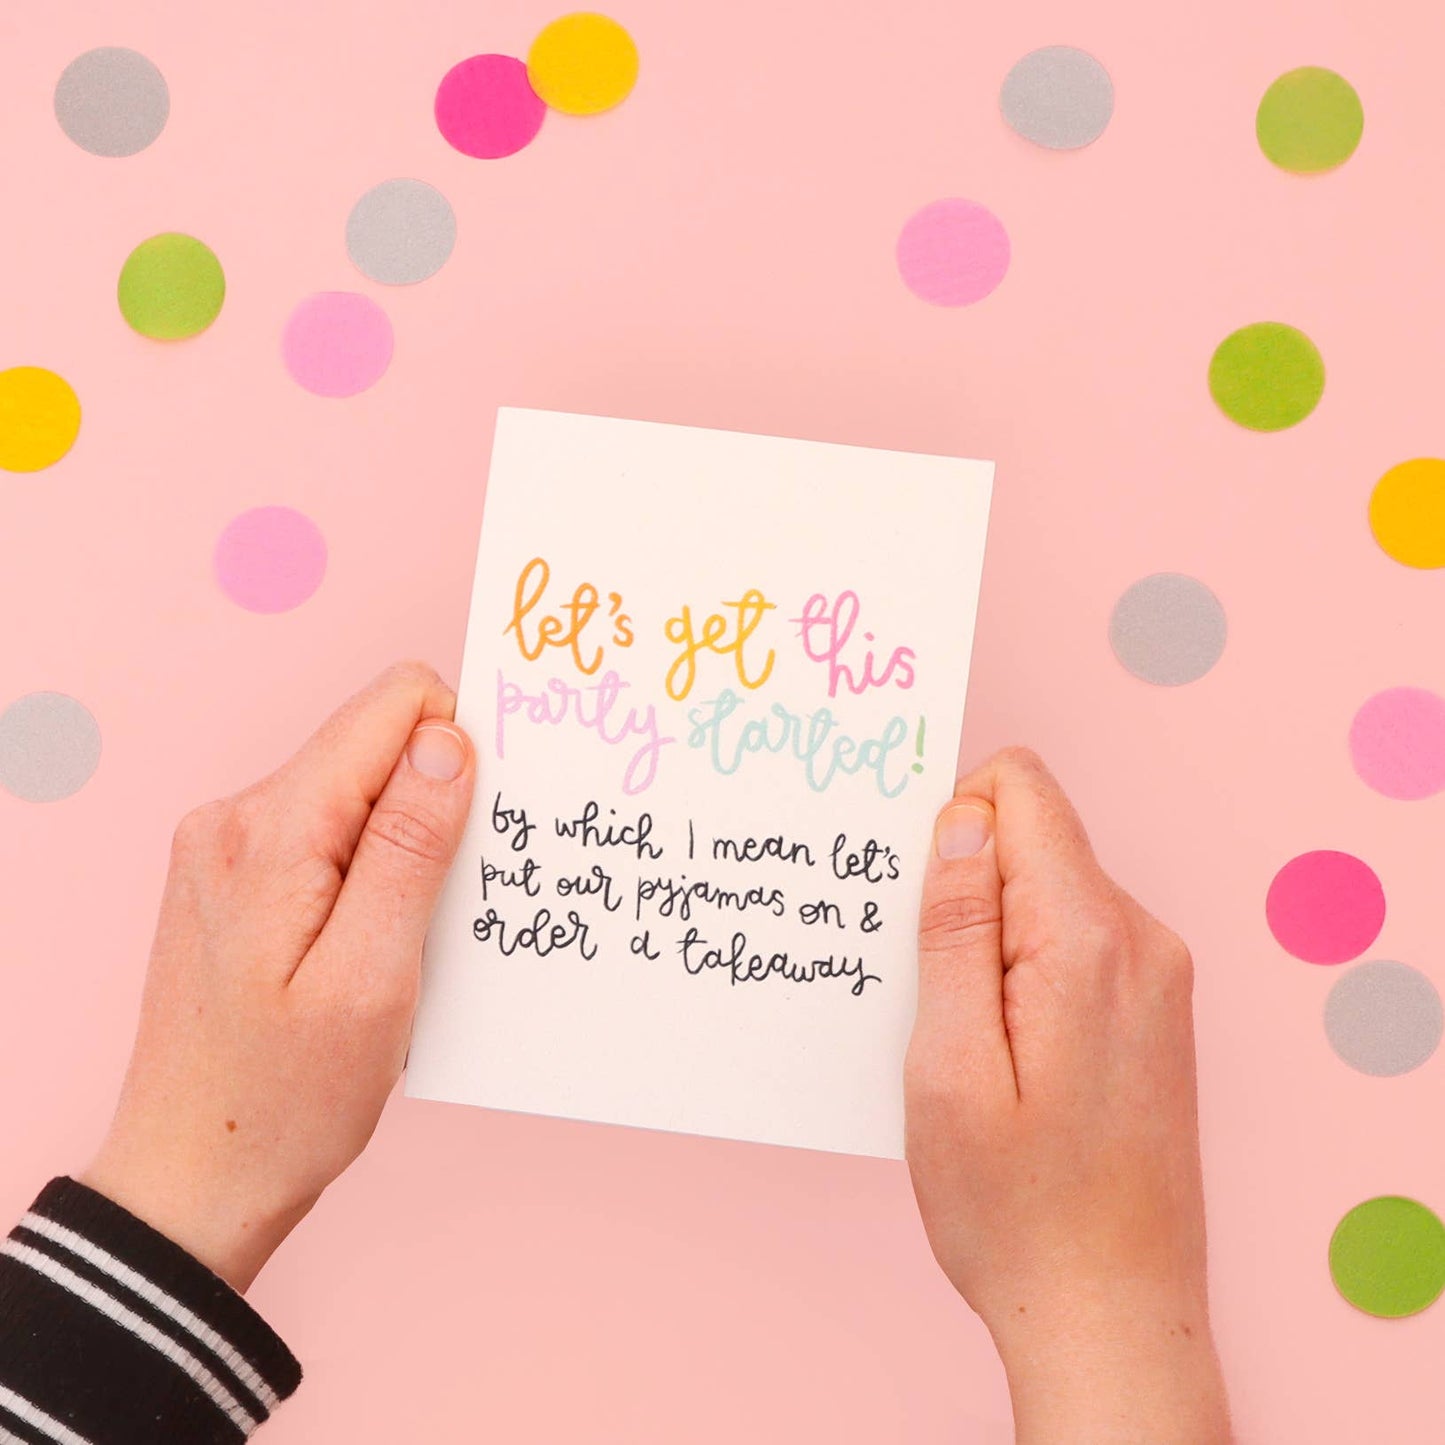 let's get this
party started!
by which I mean let's
put our pyjamas on &
order a takeaway